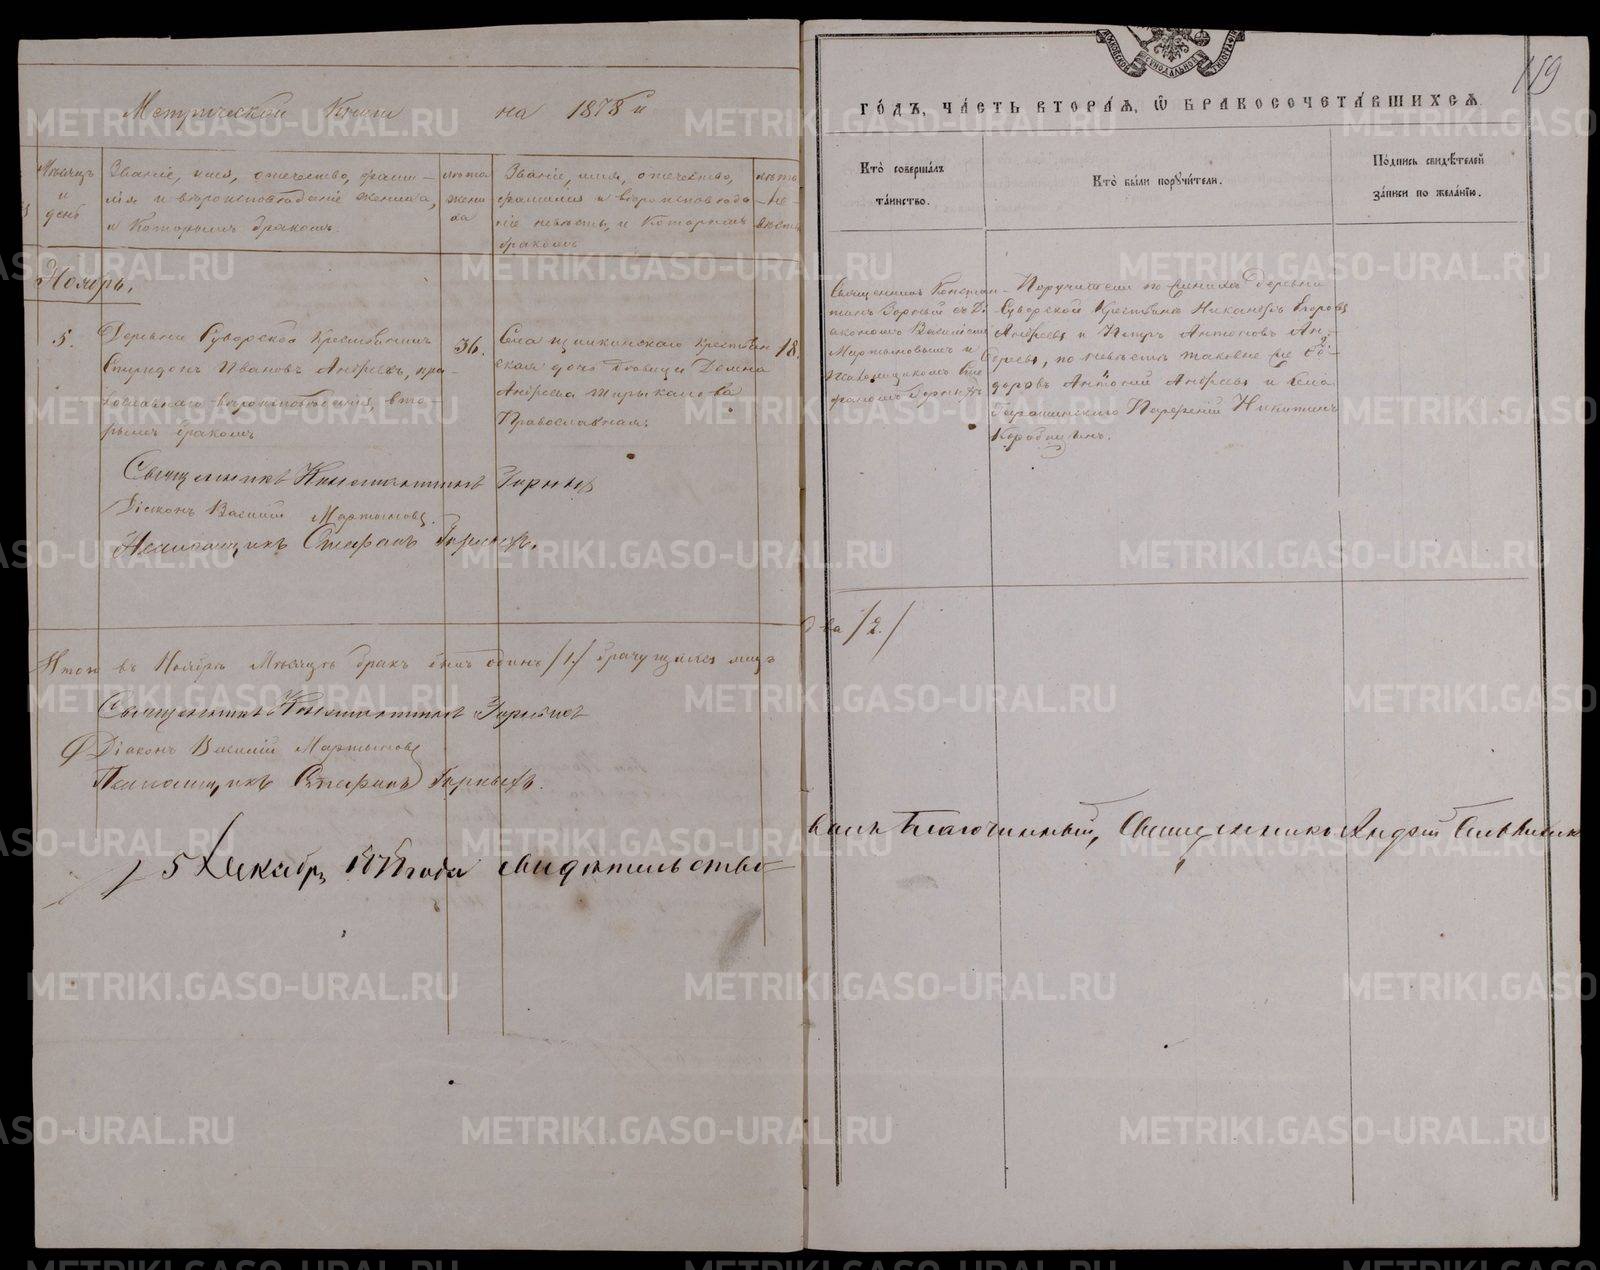 Метрической Книги на 1878 й
годъ, часть вторая, ѡ бракосочетавшихся.
159
Мѣсяцъ
и
день
Званіе, имя, отечество, фами-
лія и вѣроисповѣданіе жениха,
и которымъ бракомъ.
лѣта
жени
ха
Званіе, имя, отечество,
фамилія и вѣроисповѣда
ніе невѣсты, и которымъ
бракомъ
лѣта
не-
вѣсты
Кто совершалъ
таинство.
Кто были поручители.
Подпись свидѣтелей
записи по желанію.
Ноябрь.
5.
Деревни Суворской Крестьянинъ
Спиридонъ Ивановъ Андреевъ, пра-
вославнаго вѣроисповѣданія, вто-
рымъ бракомъ
36.
Села крестьян
ская дочь дѣвица Домна
Андреева
Православная.
18.
Священникъ Констан
тинъ Горный съ Ді
акономъ Василіемъ
Мартыновымъ и
Псаломщикомъ Сте
фаномъ Горныхъ
Поручители по женихѣ деревни
Суворской Крестьяне Никаноръ Егоровъ
Андреевъ и Петръ Антоновъ Ан-
дреевъ, по невѣстѣ таковые же
Антоній Андреевъ и Села
Парфеній Никитинъ
Священникъ Константинъ Горныхъ
Діаконъ Василій Мартыновъ.
Псаломщикъ Стефанъ Горныхъ.
Итого въ Ноябрѣ Мѣсяцѣ бракъ былъ одинъ /1/ брачущихся лицъ
два /2./
Священникъ Константинъ Горныхъ
Діаконъ Василій Мартыновъ
Псаломщикъ Стефанъ Горныхъ.
5 Декабря 1878 года свидѣтельство-
валъ Благочинный, Священникъ Андрей